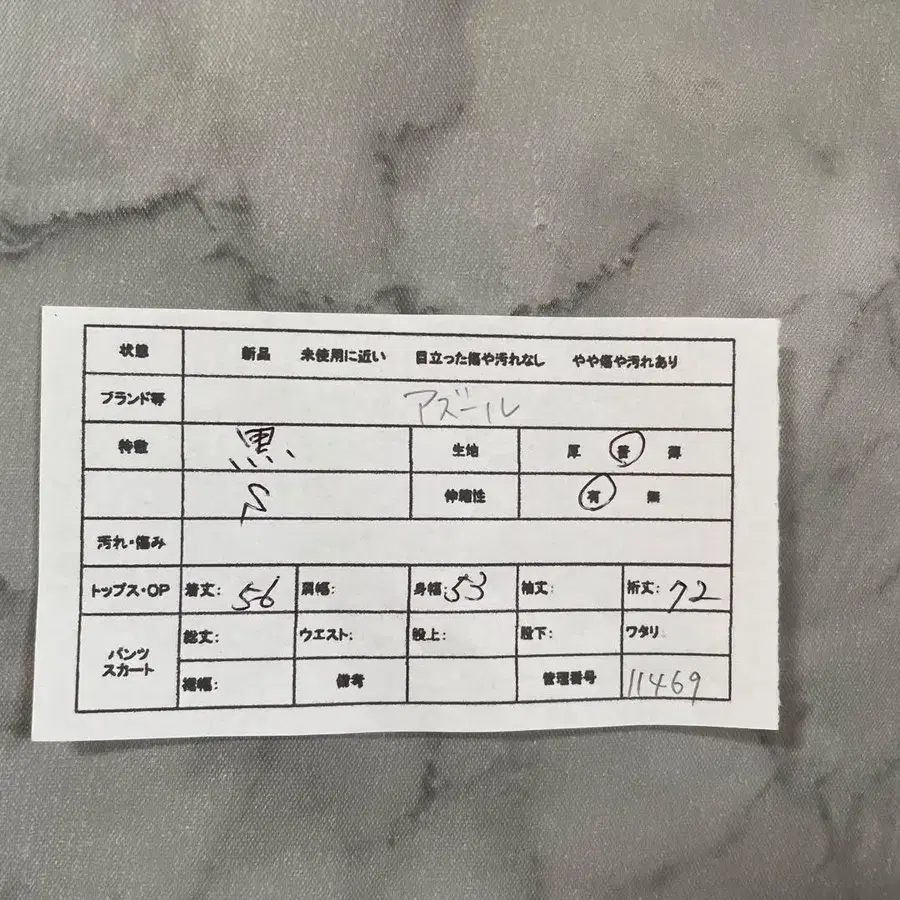 状態 新品 未使用に近い 目立った傷や汚れなし やや傷や汚れあり
ブランド等 アズール
特徴 黒 生地 厚 普 薄
S 伸縮性 有 無
汚れ・傷み
トップス・OP 着丈: 56 肩幅: 身幅: 53 袖丈: 裄丈: 72
パンツ スカート 総丈: ウエスト: 股上: 股下: ワタリ
裾幅: 備考 管理番号 11469